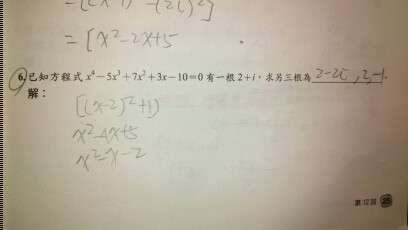 = [x²-2x+5
6. 已知方程式 x⁴-5x³+7x²+3x-10=0 有一根 2+i，求另三根為 2-2i, 2, -1.
解：
[(x-2)²+1)
x²-4x+5
x²-x-2
第12回